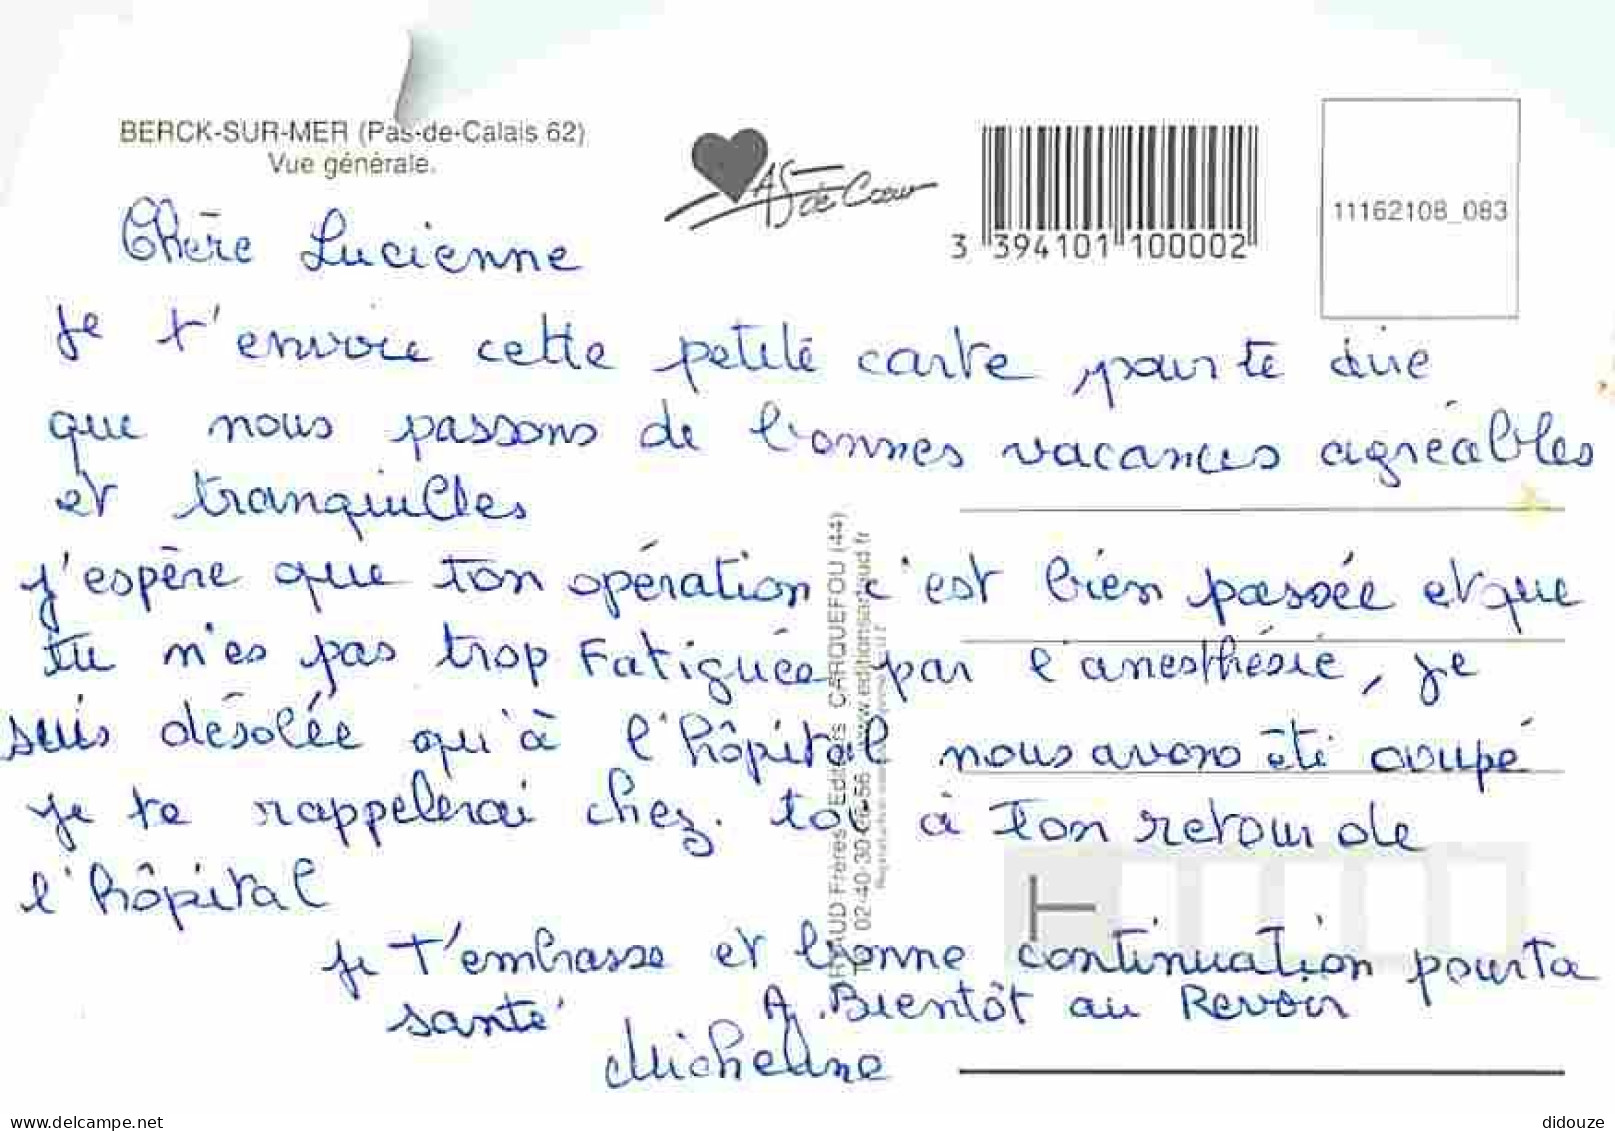 BERCK-SUR-MER (Pas-de-Calais 62)
Vue générale.
AS de Cœur
3 394101 100002
11162108_083
Chère Lucienne
je t'envoie cette petite carte pour te dire
que nous passons de bonnes vacances agréables
et tranquilles
j'espère que ton opération c'est bien passée et que
tu n'es pas trop Fatiguée par l'anesthésie, je
suis désolée qu'à l'hôpital nous avons été coupé
je te rappelerai chez toi à ton retour de
l'hôpital
je t'embrasse et bonne continuation pour ta
santé
A Bientôt au Revoir
Micheline
Frères Editeurs CARQUEFOU (44)
02-40-30 56 www.editionsartaud.fr
delcampe.net
didouze